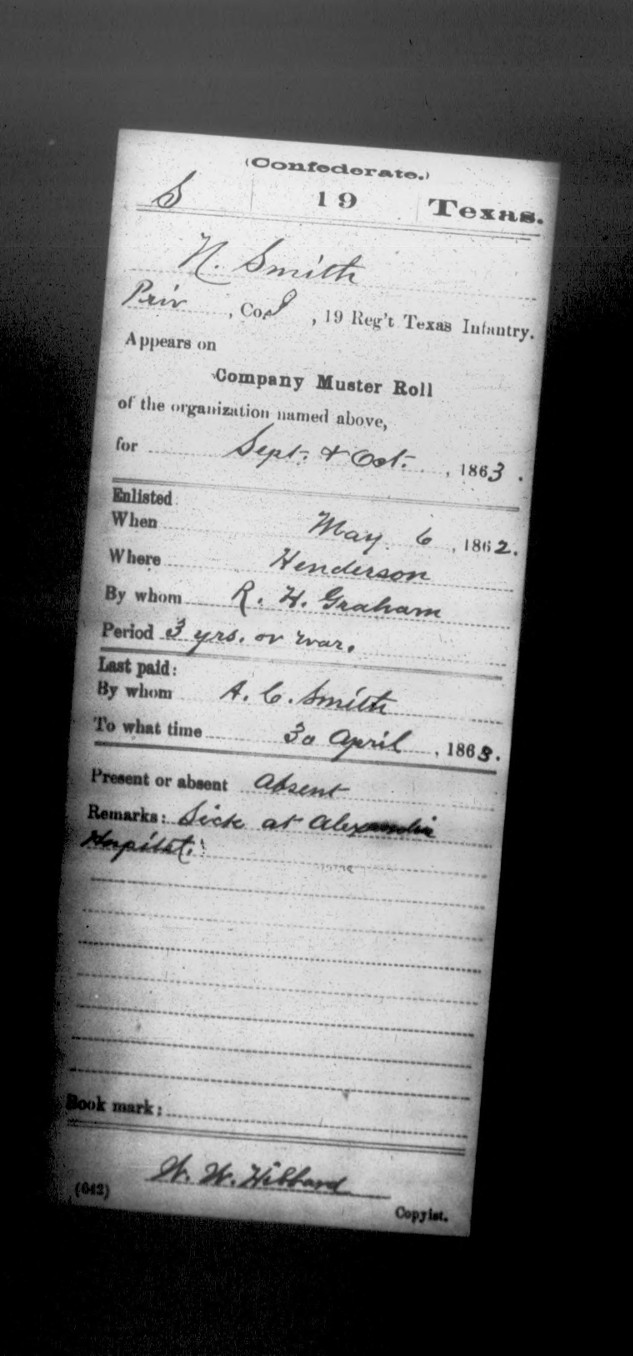 (Confederate.)
S 19 Texas.
N. Smith
Priv , Co. I , 19 Reg't Texas Infantry.
Appears on
Company Muster Roll
of the organization named above,
for Sept. & Oct. , 1863.
Enlisted
When May 6 , 1862.
Where Henderson
By whom R. H. Graham
Period 3 yrs. or war.
Last paid:
By whom A. C. Smith
To what time 30 April , 1863.
Present or absent Absent
Remarks: Sick at Alexandria
Hospital.
Book mark:
W. W. Hibbard
(642) Copyist.